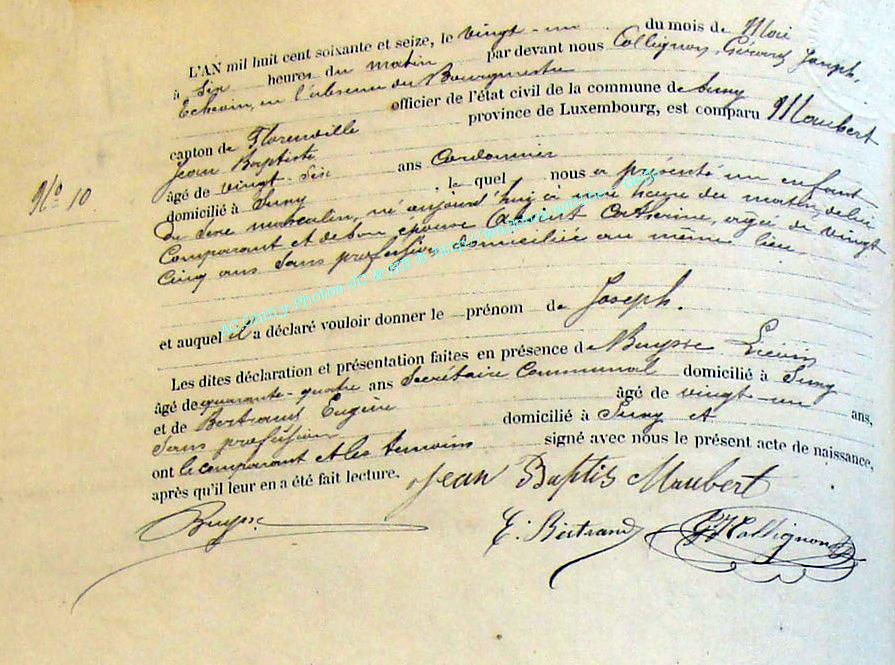 L'AN mil huit cent soixante et seize, le vingt-un du mois de Mai
à six heures du matin par devant nous Collignon, Gérard Joseph,
Echevin, en l'absence du Bourgmestre
officier de l'état civil de la commune de Suny
canton de Florenville province de Luxembourg, est comparu Maubert
Jean Baptiste
âgé de vingt-six ans Cordonnier
domicilié à Suny, le quel nous a présenté un enfant
du sexe masculin, né aujourd'hui à une heure du matin, de lui
Comparant et de son épouse Catherine, agée de vingt
cinq ans sans profession, domiciliée au même lieu.
N° 10
et auquel il a déclaré vouloir donner le prénom de Joseph.
Les dites déclaration et présentation faites en présence de Buysse Liévin
âgé de quarante-quatre ans Secrétaire Communal domicilié à Suny
et de Bertrand Eugène âgé de vingt-un ans,
sans profession domicilié à Suny et
ont le comparant et les témoins signé avec nous le présent acte de naissance,
après qu'il leur en a été fait lecture.
Jean Baptis Maubert
Buysse
E. Bertrand
GJCollignon